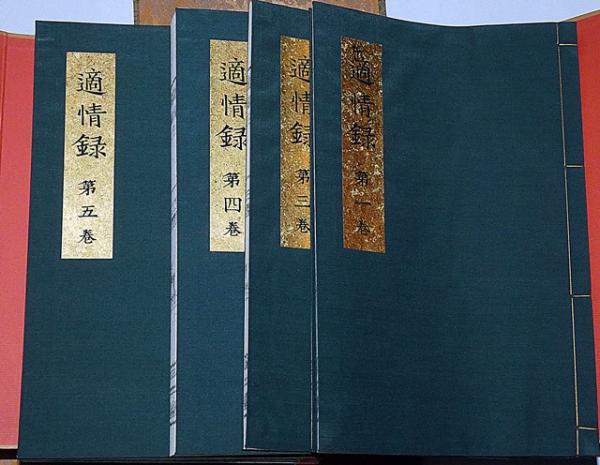 適情録 第一巻
適情録 第三巻
適情録 第四巻
適情録 第五巻